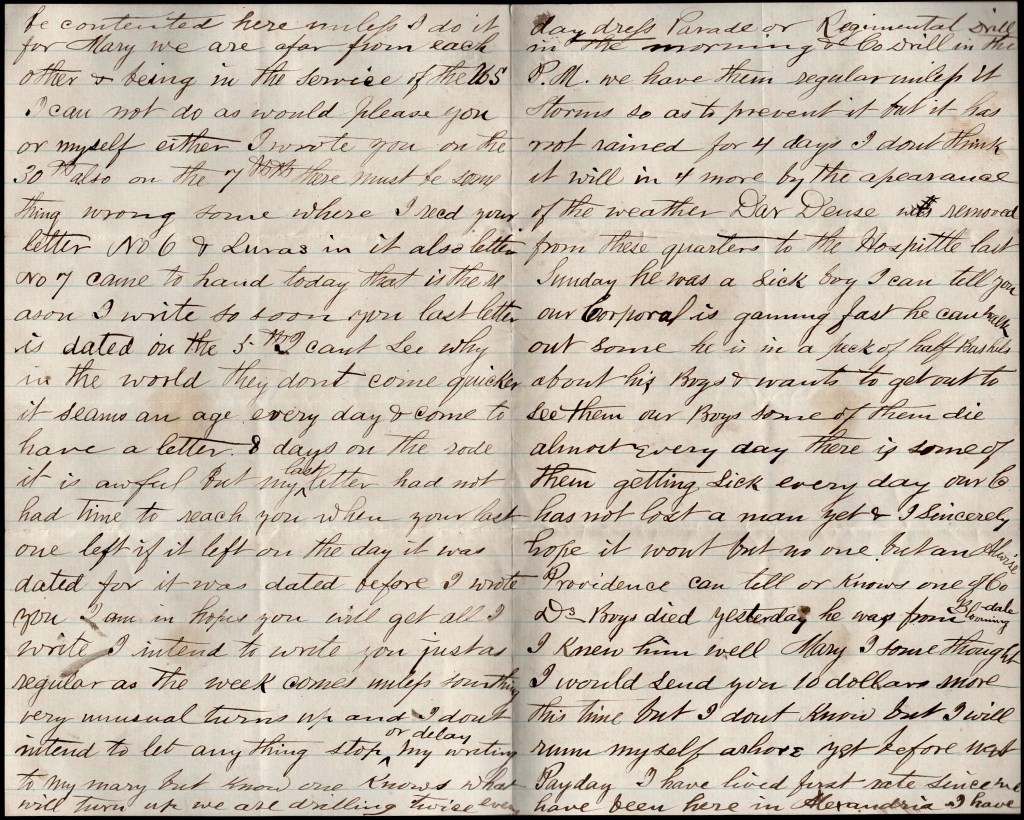 be contented here unless I do it
for Mary we are afar from each
other & being in the service of the US
I can not do as would please you
or myself either I wrote you on the
30th also on the 7 there must be some
thing wrong some where I recd your
letter No 6 & Luras in it also letter
No 7 came to hand today that is the re
ason I write so soon you last letter
is dated on the 5th I cant see why
in the world they dont come quicker
it seams an age every day & come to
have a letter 8 days on the rode
it is awful but my last letter had not
had time to reach you when your last
one left if it left on the day it was
dated for it was dated before I wrote
you I am in hopes you will get all I
write I intend to write you just as
regular as the week comes unless somthing
very unusual turns up and I dont
intend to let any thing stop or delay my writing
to my mary but know one knows what
will turn up we are drilling twice every
day dress Parade or Regimental Drill
in the morning & Co drill in the
P.M. we have them regular unless it
Storms so as to prevent it but it has
not rained for 4 days I dont think
it will in 4 more by the apearance
of the weather Dar Dense was removed
from these quarters to the Hospittle last
Sunday he was a Sick boy I can tell you
our Corporal is gaining fast he can walk
out some he is in a peck of half Bushels
about his Boys & wants to get out to
see them our Boys some of them die
almost every day there is some of
them getting Sick every day our Co
has not lost a man yet & I Sincerely
hope it wont but no one but an Alwise
Providence can tell or knows one of Co
Ds Boys died yesterday he was from Bloomingdale
I knew him well Mary I some thought
I would send you 10 dollars more
this time but I dont know but I will
runn myself ashore yet before next
Payday I have lived first rate since we
have been here in Alexandria I have